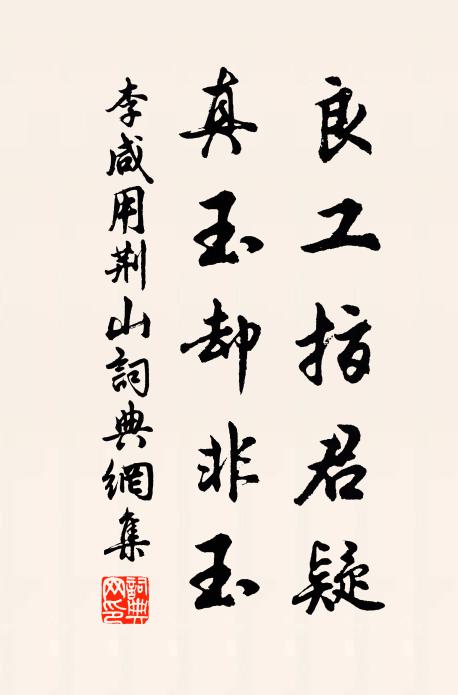 良工指君疑
真玉却非玉
李咸用荆山詞典網集
詞典网印